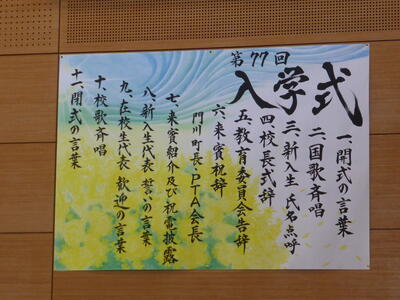 第77回
入学式
一、開式の言葉
二、国歌斉唱
三、新入生 氏名点呼
四、校長式辞
五、教育委員会告辞
六、来賓祝辞
門川町長・PTA会長
七、来賓紹介及び祝電披露
八、新入生代表 誓いの言葉
九、在校生代表 歓迎の言葉
十、校歌斉唱
十一、閉式の言葉